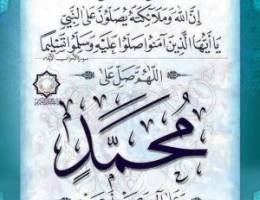 إِنَّ اللَّهَ وَمَلَائِكَتَهُ يُصَلُّونَ عَلَى النَّبِيِّ
يَا أَيُّهَا الَّذِينَ آمَنُوا صَلُّوا عَلَيْهِ وَسَلِّمُوا تَسْلِيمًا
اللَّهُمَّ صَلِّ عَلَى
مُحَمَّدٍ